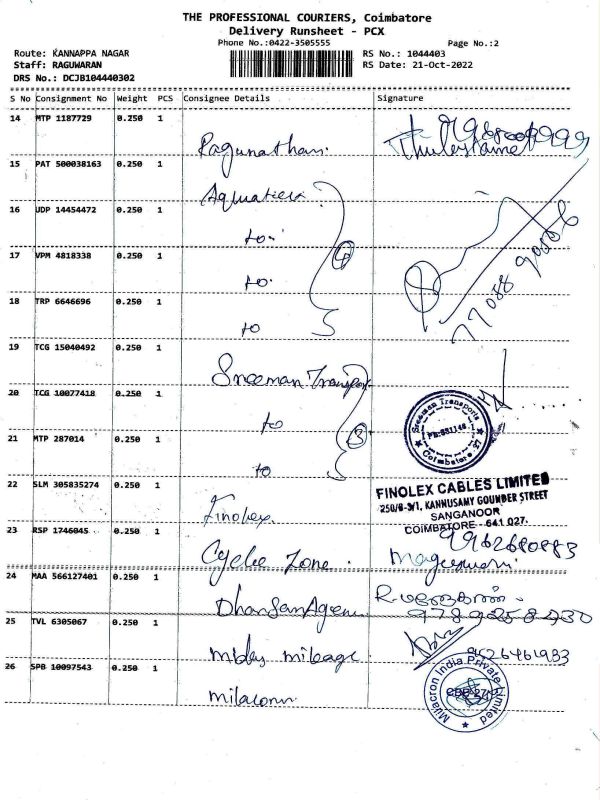 THE PROFESSIONAL COURIERS, Coimbatore
Delivery Runsheet - PCX
Phone No.:0422-3505555
Page No.:2
Route: KANNAPPA NAGAR
RS No.: 1044403
Staff: RAGUWARAN
RS Date: 21-Oct-2022
DRS No.: DCJB104440302
S No Consignment No Weight PCS Consignee Details Signature
14 MTP 1187729 0.250 1
Ragunathan.
15 PAT 500038163 0.250 1
16 UDP 14454472 0.250 1
to.
4
17 VPM 4818338 0.250 1
to.
18 TRP 6646696 0.250 1
to
19 TCG 15040492 0.250 1
Sreeman Transport
20 TCG 10077418 0.250 1
to
3
Sreeman Transports
Coimbatore
21 MTP 287014 0.250 1
to
22 SLM 305835274 0.250 1
Finolex.
FINOLEX CABLES LIMITED
KANNUSAMY GOUNDER STREET
SANGANOOR
COIMBATORE - 641 027.
23 RSP 1746045 0.250 1
Cycle Zone.
24 MAA 566127401 0.250 1
25 TVL 6305067 0.250 1
mileage
26 SPB 10097543 0.250 1
milacorn
Milacron India Private Limited